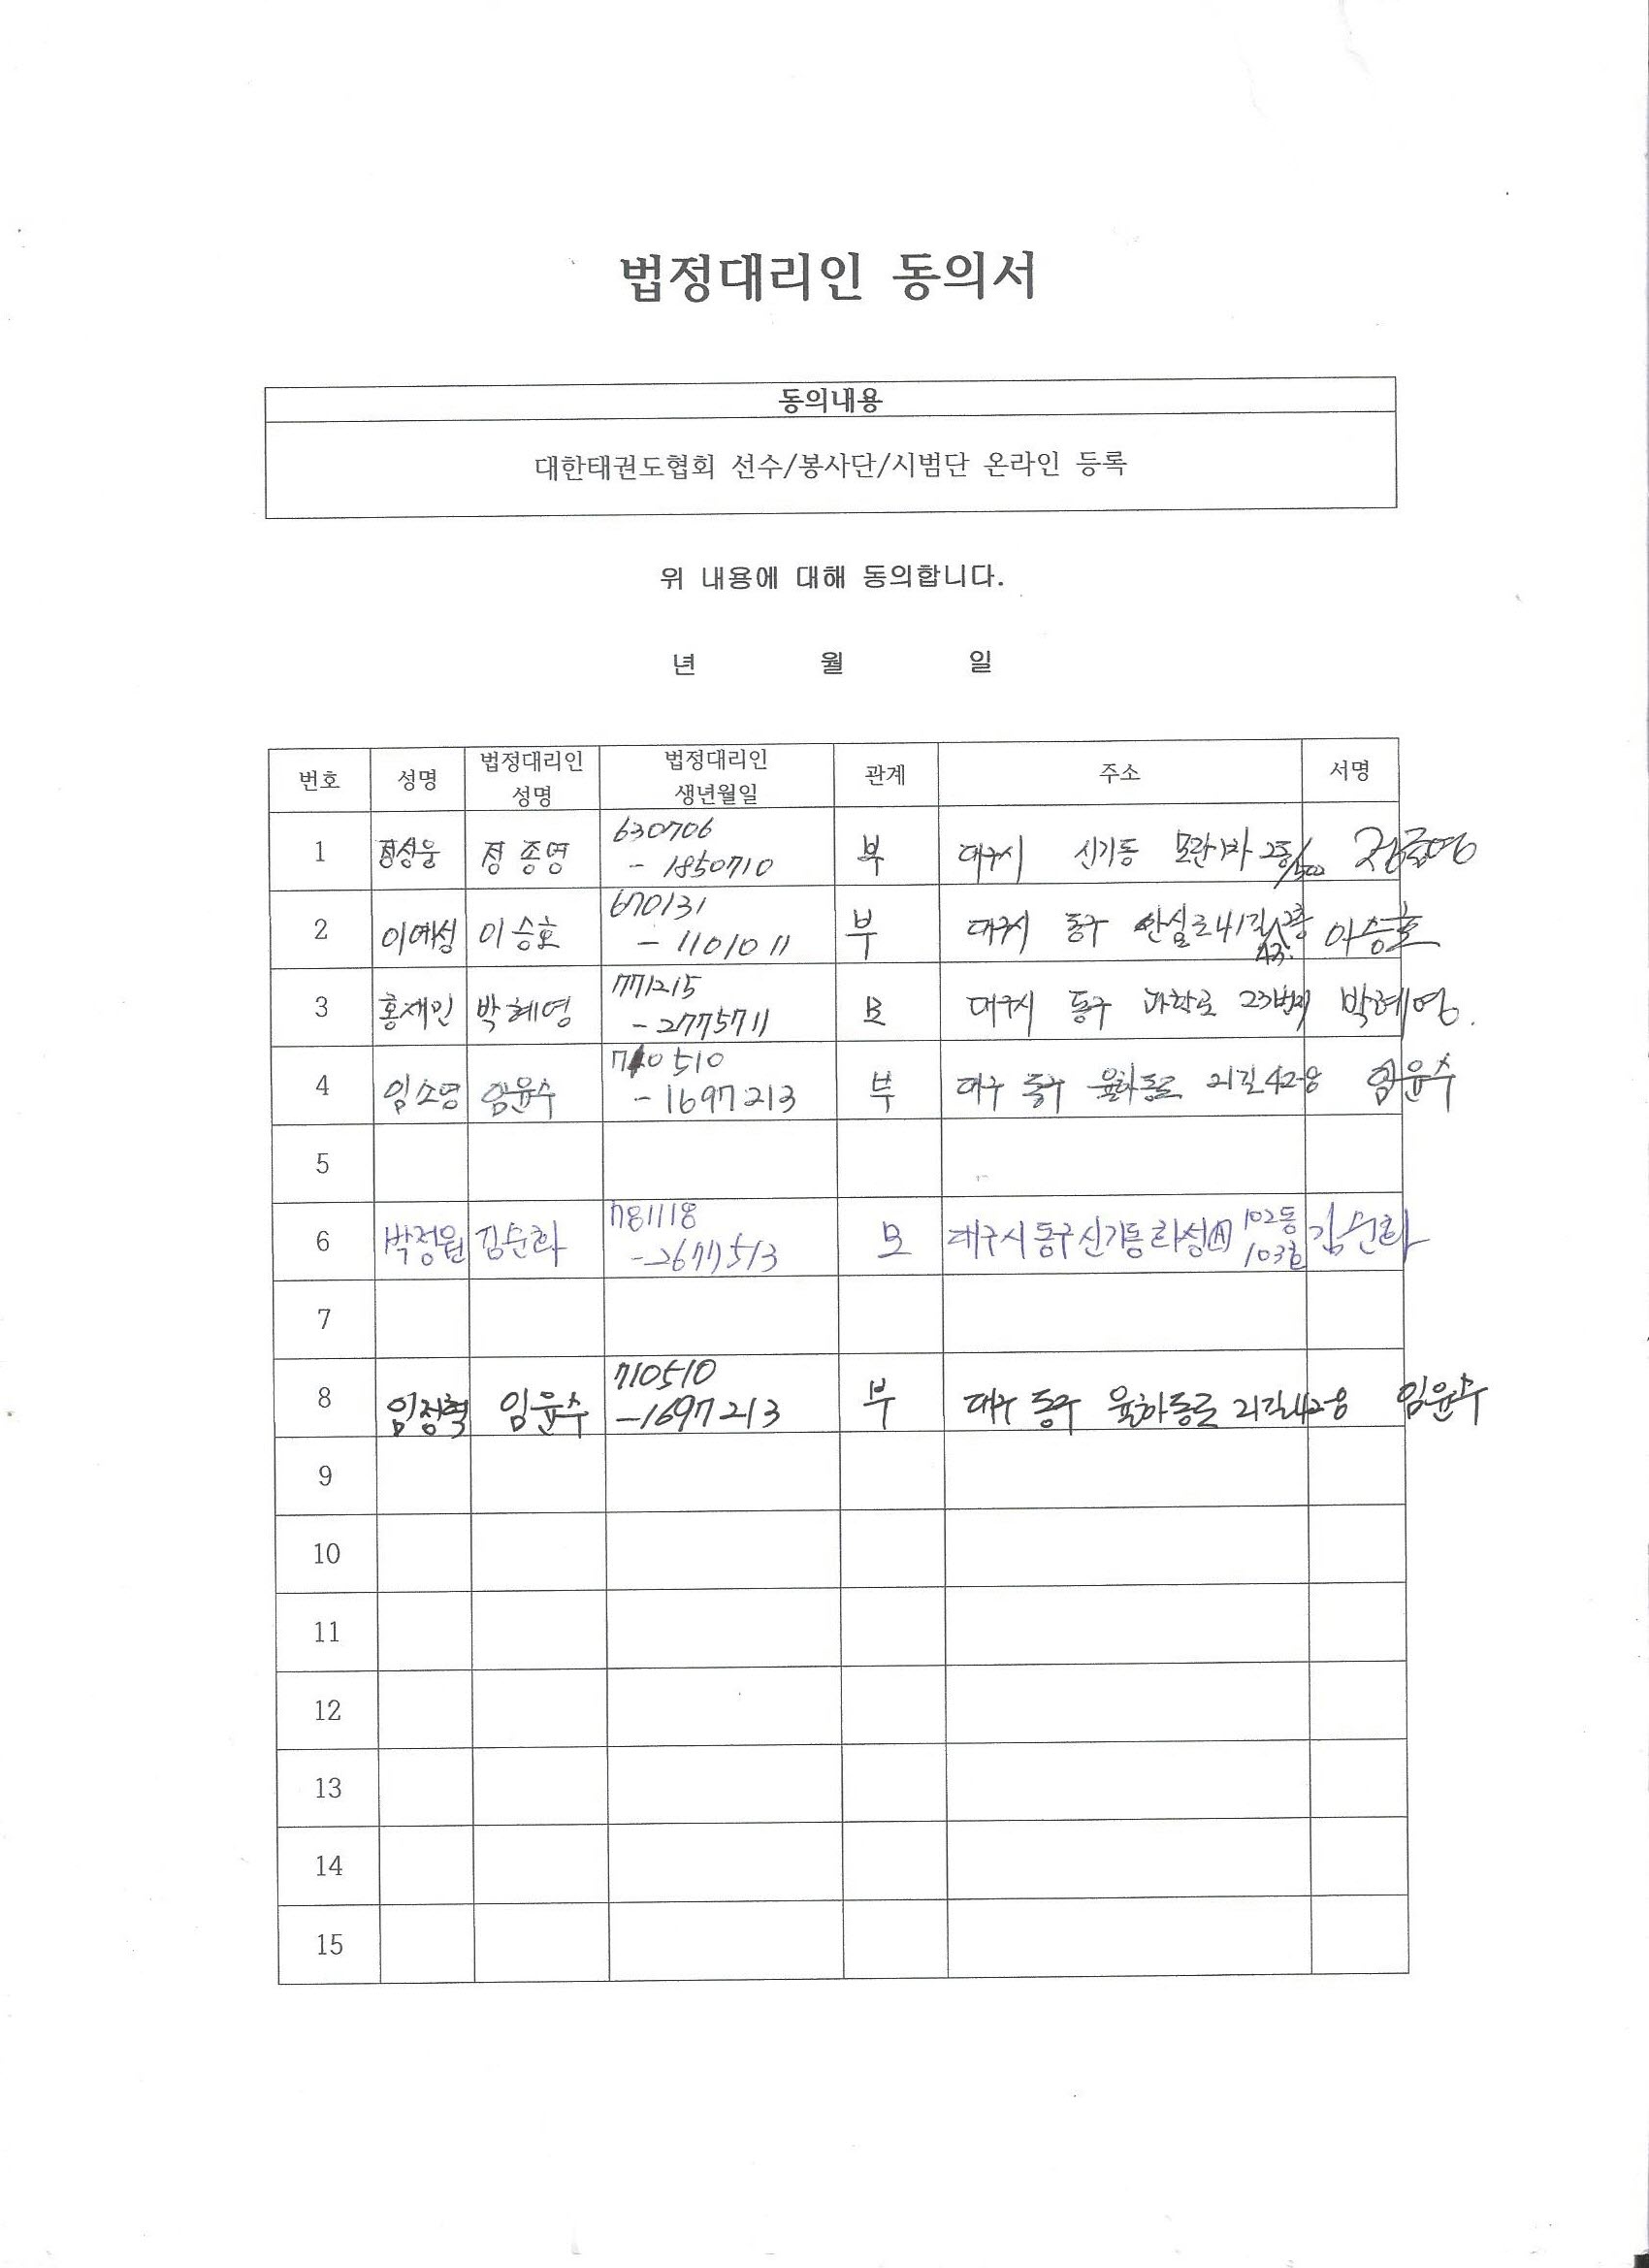 법정대리인 동의서
동의내용
대한태권도협회 선수/봉사단/시범단 온라인 등록
위 내용에 대해 동의합니다.
년 월 일
번호 성명 법정대리인 성명 법정대리인 생년월일 관계 주소 서명
1 정성웅 정종영 630706 - 1850710 부 대구시 신기동 정종영
2 이예성 이승호 670131 - 1101011 부 대구시 동구 이승호
3 홍재민 박혜영 771215 - 2775711 모 대구시 동구 과학로 박혜영.
4 임소영 임윤수 710510 - 1697213 부 대구 동구 율하동로 21길 42-8 임윤수
5
6 박정원 김순화 781118 - 2677513 모 대구시 동구 신기동 화성 102동 103호 김순화
7
8 임정혁 임윤수 710510 - 1697213 부 대구 동구 율하동로 21길 42-8 임윤수
9
10
11
12
13
14
15